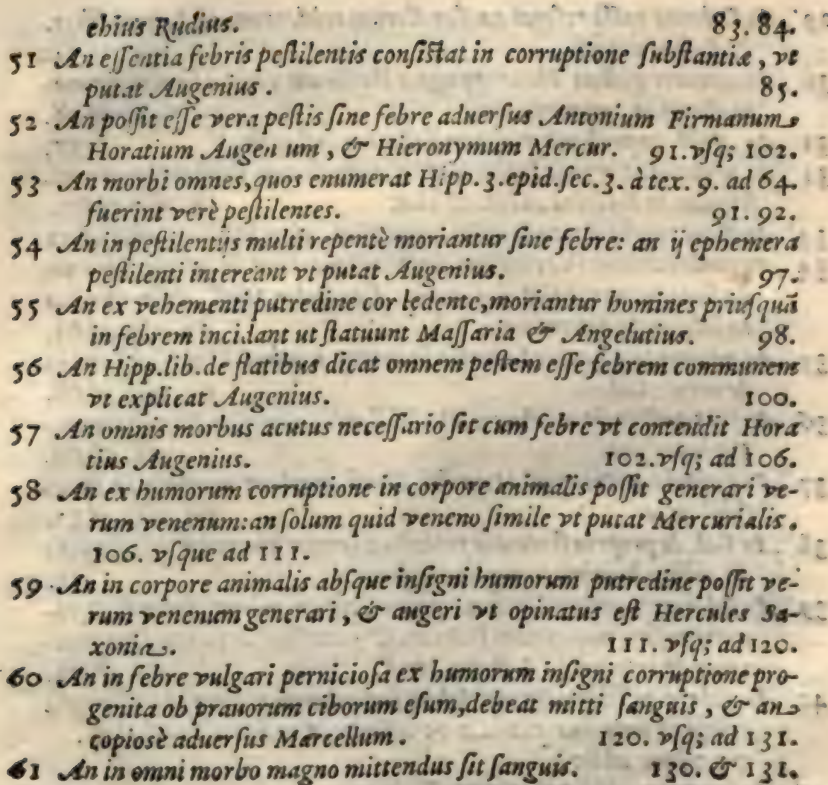 chius Rudius. 83.84.
51 An essentia febris pestilentis consistat in corruptione substantiæ, vt
putat Augenius. 85.
52 An possit esse vera pestis sine febre aduersus Antonium Firmanum
Horatium Augen um, & Hieronymum Mercur. 91.vsq; 102.
53 An morbi omnes,quos enumerat Hipp.3.epid.sec.3. à tex. 9. ad 64.
fuerint verè pestilentes. 91.92.
54 An in pestilentijs multi repentè moriantur sine febre: an ij ephemera
pestilenti intereant vt putat Augenius. 97.
55 An ex vehementi putredine cor ledente,moriantur homines priusquã
in febrem incidant ut statuunt Massaria & Angelutius. 98.
56 An Hipp.lib.de flatibus dicat omnem pestem esse febrem communem
vt explicat Augenius. 100.
57 An omnis morbus acutus necessario sit cum febre vt contendit Hora
tius Augenius. 102.vsq; ad 106.
58 An ex humorum corruptione in corpore animalis possit generari ve-
rum venenum:an solum quid veneno simile vt putat Mercurialis.
106. vsque ad 111.
59 An in corpore animalis absque insigni humorum putredine possit ve-
rum venenum generari, & augeri vt opinatus est Hercules Sa-
xonia. 111. vsq; ad 120.
60 An in febre vulgari perniciosa ex humorum insigni corruptione pro-
genita ob prauorum ciborum esum,debeat mitti sanguis, & an
copiosè aduersus Marcellum. 120. vsq; ad 131.
61 An in omni morbo magno mittendus sit sanguis. 130. & 131.